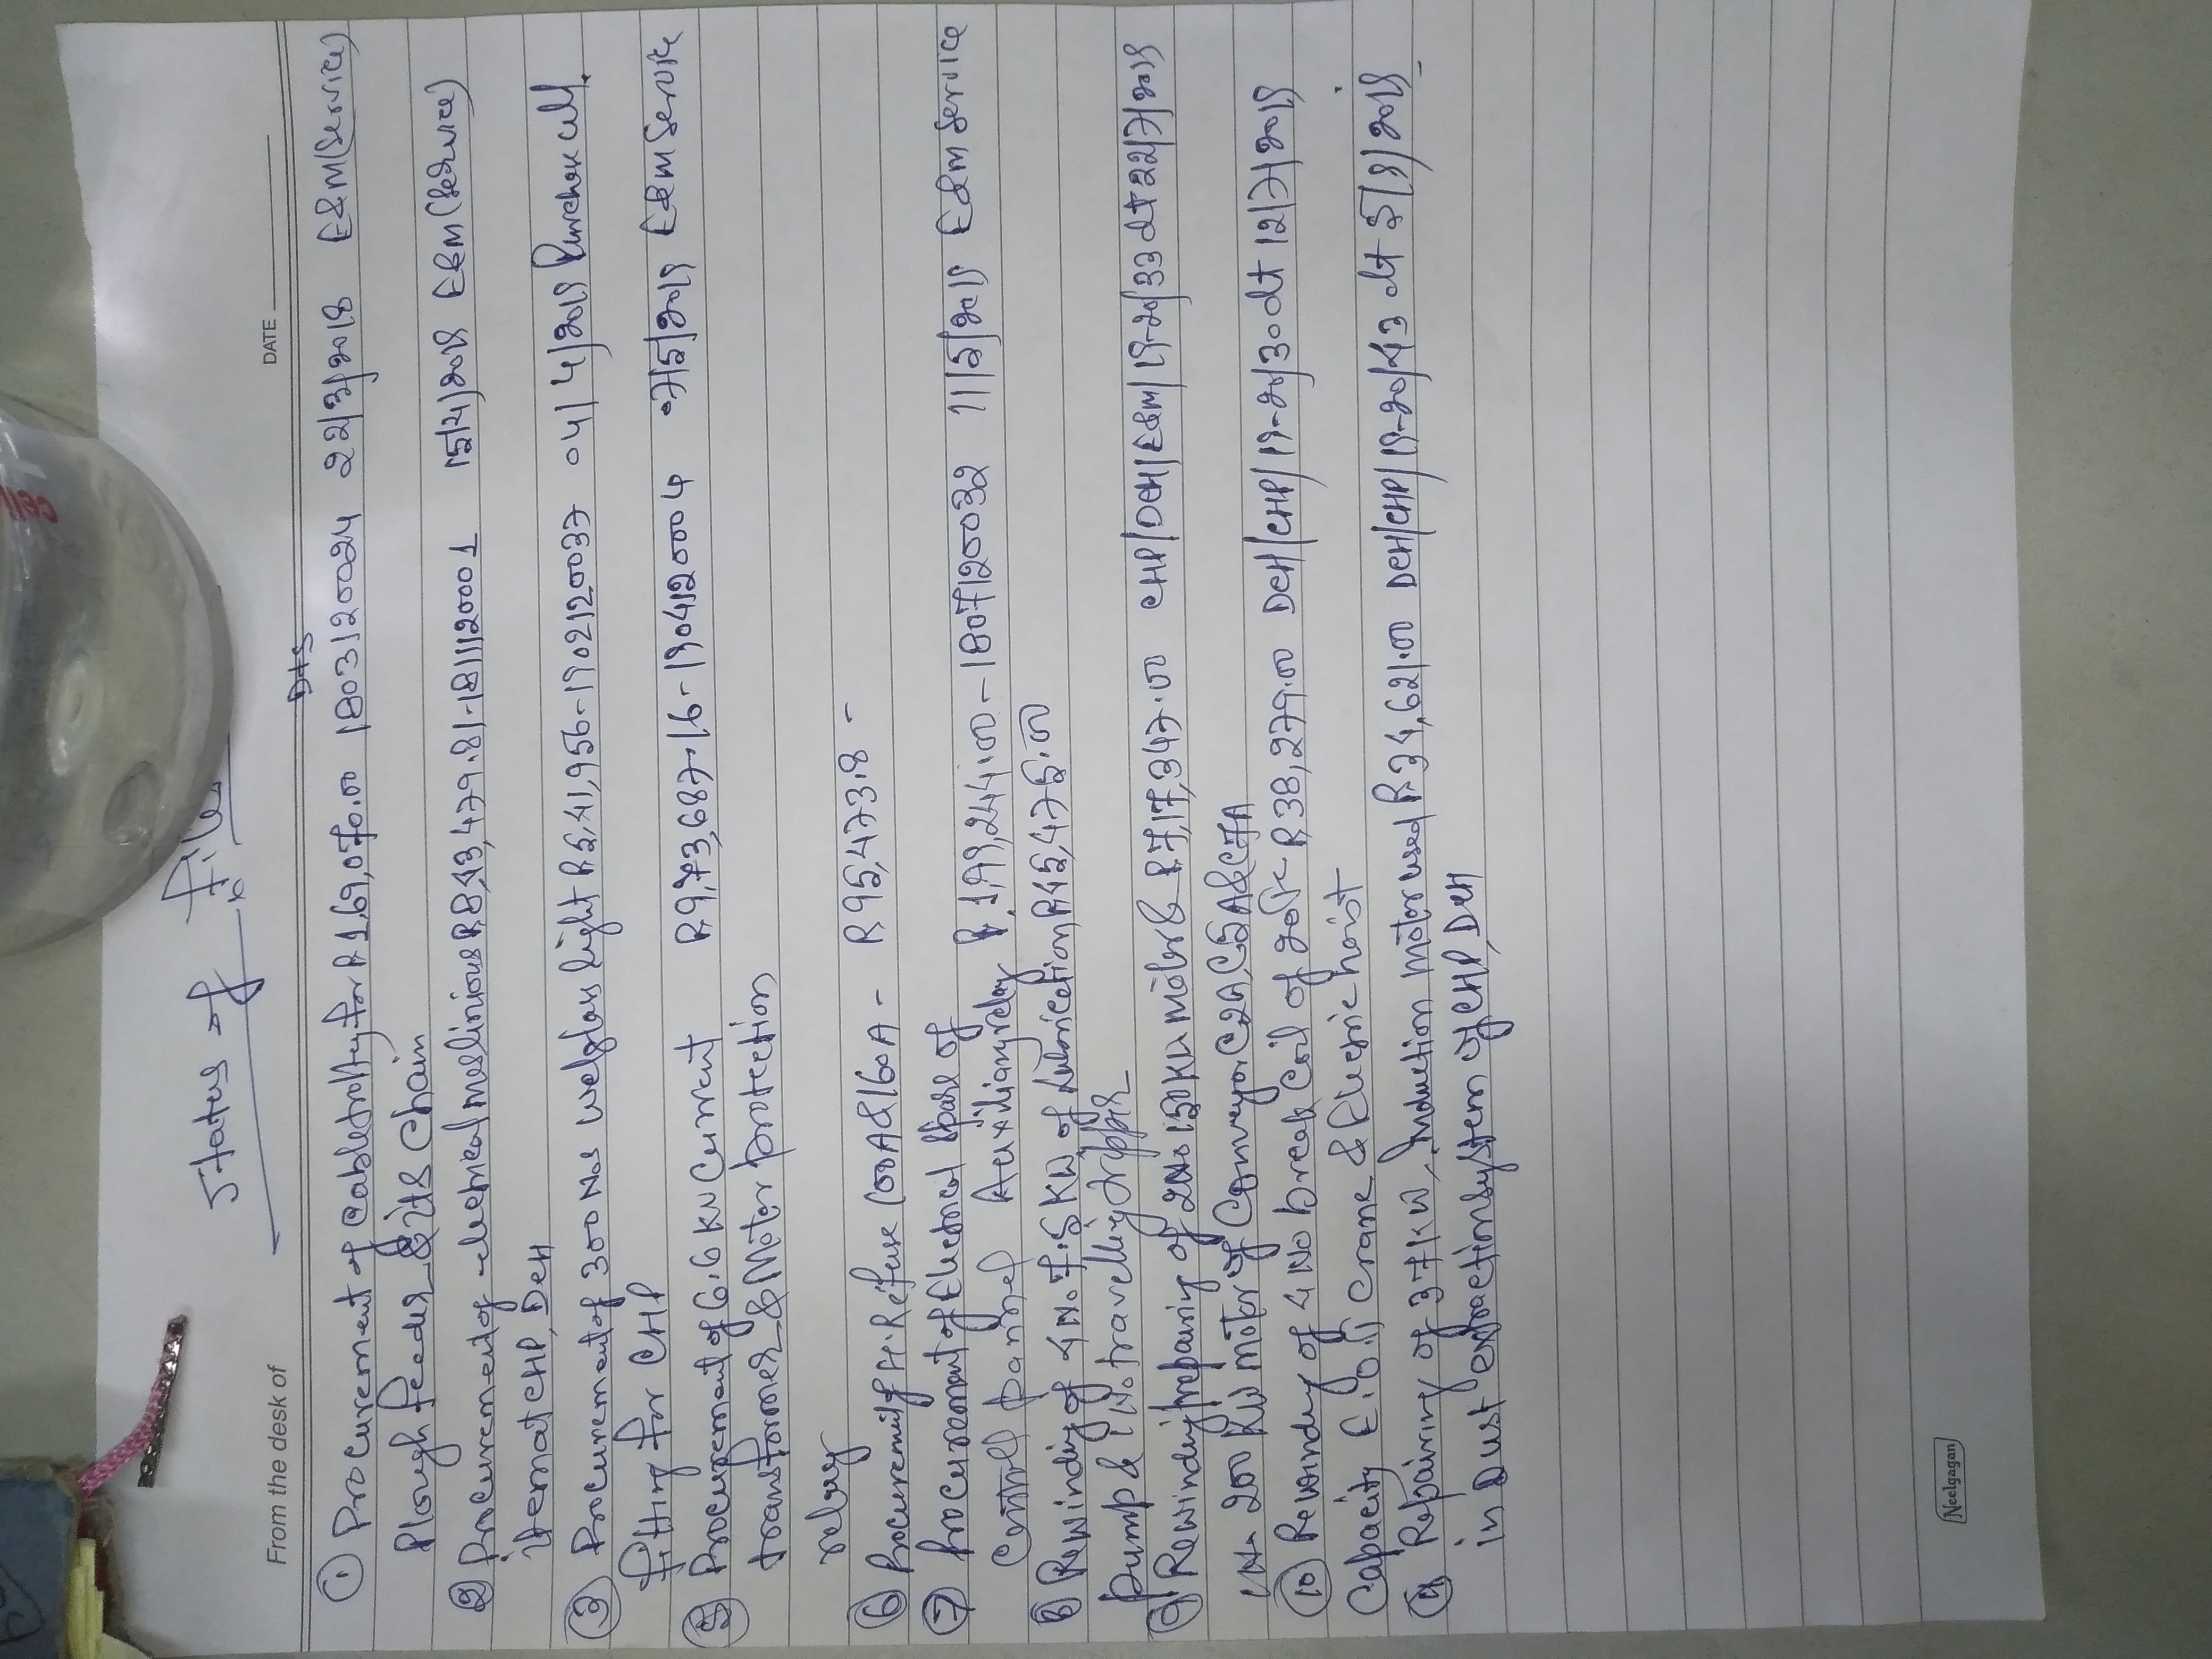 From the desk of
DATE
Status of File
DHS
① Procurement of Cable trolley for R 1,69,070.00 1803120024 22/3/2018 E&M(Service)
Plough feeder & its Chain
② Procurement of electrical R 8,43,479.81-181112000 1 15/4/2018 E&M(Service)
item at CHP, DCH
③ Procurement of 300 Nos light R 5,41,956-1902120037 04/4/2019 Purchase cell.
fitting for CHP
⑤ Procurement of 6.6 KV Current R 9,73,687-16-190412000 4 E&M Service
transformer & Motor protection
relay
⑥ Procurement of H.R. fuse 100A & 160A - R 95,473.8 -
⑦ Procurement of Electrical Spare of R 1,99,244.00-1807120032 11/5/2019 E&M Service
Control pannel Auxiliary relay
⑧ Rewinding of 4 No 7.5 KW of Lubrication R 45,475.00
pump & 1 No travelling tripper
⑨ Rewinding/repairing of 2 No 150 KW motor & R 7,17,347.00 CHP/DCH/E&M/19-20/33 dt 22/7/2019
1 No 200 KW motor of Conveyor C2A, C5A & C7A
⑩ Rewinding of 4 No break Coil of 20Te R 38,279.00 DCH/CHP/19-20/30 dt 12/7/2019
Capacity E.O.T crane & Electric hoist
Repairing of 37 KW, Induction motor used R 34,621.00 DCH/CHP/19-20/43 dt 5/8/2019
in Dust extraction system of CHP, DCH
Neelgagan